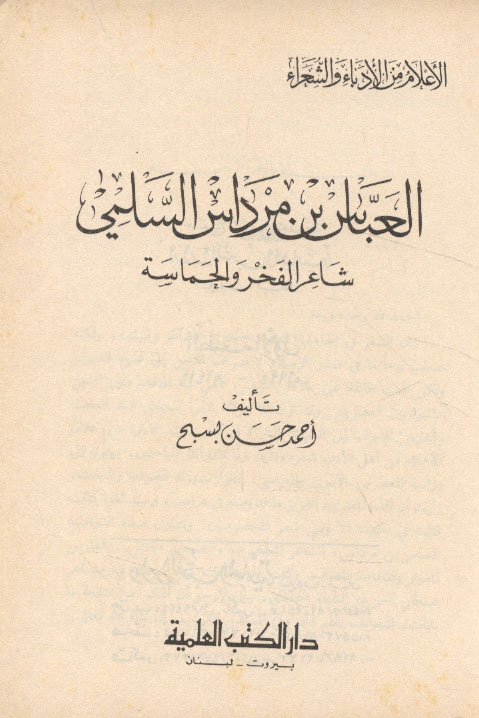 الأعلام من الأدباء والشعراء
العَبَّاس بن مرداس السَّلمي
شاعر الفَخْر وَالحَمَاسَة
تأليف
أحمد حسَن بسبح
دار الكتب العلمية
بيروت - لبنان